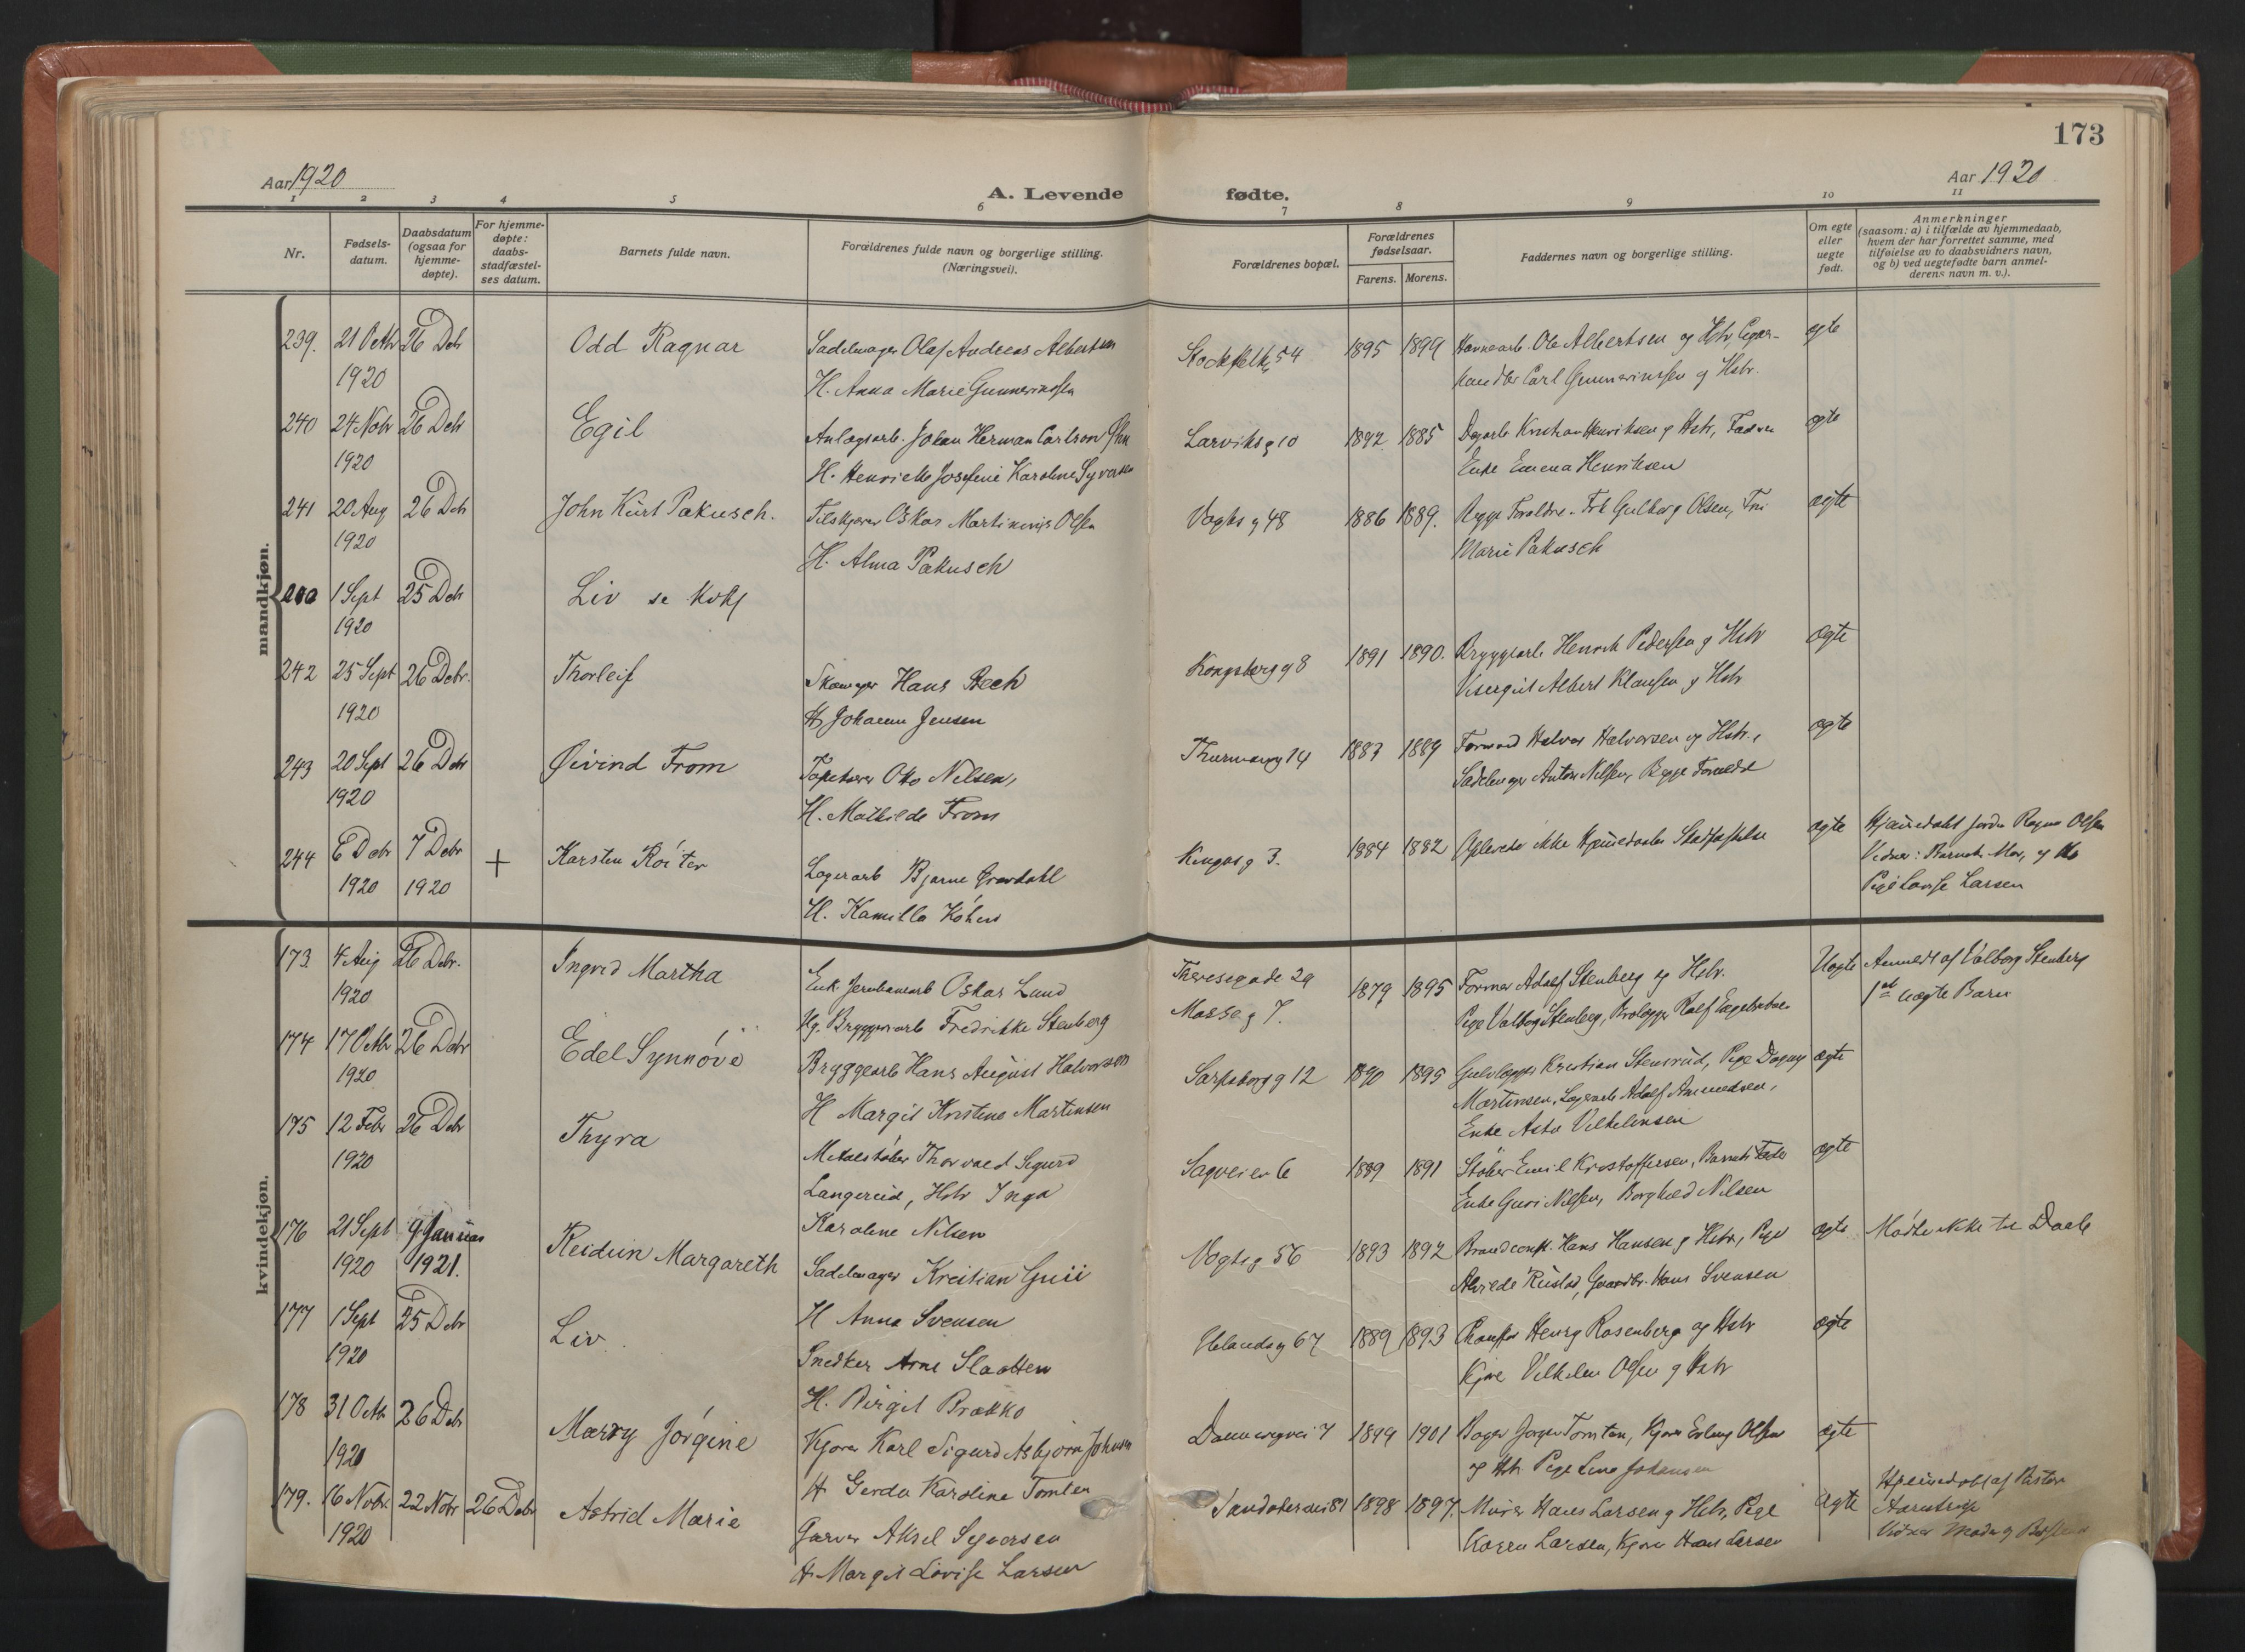 173
Aar 1920
A. Levende fødte.
Aar 1920
1 2 3 4 5 6 7 8 9 10 11
Nr.
Fødsels-
datum.
Daabsdatum
(ogsaa for
hjemme-
døpte).
For hjemme-
døpte:
daabs-
stadfæstel-
ses datum.
Barnets fulde navn.
Forældrenes fulde navn og borgerlige stilling.
(Næringsvei).
Forældrenes bopæl.
Forældrenes
fødselsaar.
Farens. Morens.
Faddernes navn og borgerlige stilling.
Om egte
eller
uegte
født.
Anmerkninger
(saasom: a) i tilfælde av hjemmedaab,
hvem der har forrettet samme, med
tilføielse av to daabsvidners navn,
og b) ved uegtefødte barn anmel-
derens navn m. v.).
mandkjøn.
239. 21 Octbr 26 Debr Odd Ragnar Sadelmager Olaf Andreas Albertsen 1895 1899 Havnearb. Ole Albertsen og Hstr, Cigar- egte
1920 H. Anna Marie Gunnerinssen handler Carl Gunnerinssen og Hstr.
240 24 Nobr 26 Debr Egil Anlægsarb. Johan Herman Carlson Larviksg 10 1892 1885 Dagarb Kristian Henriksen g Hstr, Fadren egte
1920 H. Henriette Josefine Karoline Syversen Enke Emma Henriksen
241 20 Aug 26 Debr John Kurt Pakusch. Oskar Martinius Olsen Vogtsg 48 1886 1889. Begge Foreldre. Frk Gulborg Olsen, Fru egte
1920 H. Alma Pakusch Marie Pakusch
1 Sept 25 Debr Liv se kvkj
1920
242 25 Sept 26 Debr. Thorleif Skomager Hans Bech Kongsbergg 8 1891 1890. Bryggearb Henrik Pedersen g Hstr egte
1920 H Johanne Jensen Visergut Albert Klausen g Hstr
243 20 Sept 26 Debr Øivind From Tapetserer Otto Nilsen, 14 1883 1889 Formand Halvor Halvorsen og Hstr., egte
1920 H. Mathilde From Sadelmager Anton Nilsen, Begge Foreldre
244 6 Debr 7 Debr + Karsten Lagerarb Bjarne Grøndahl g 3. 1884 1882 Oplevede ikke Hjemmedaabs Stadfæstelse egte Hjemmedøbt Jordm Ragna Olsen
1920 1920 H. Kamilla Vidner: Barnets Mor, og
Pige Lovise Larsen
kvindekjøn.
173. 4 Aug 26 Debr. Ingrid Martha Enk. Jernbanearb Oskar Lund Theresegade 29 1879 1895 Former Adolf Stenberg og Hstr. Uegte Anmeldt af Valborg Stenberg
1920 Ug. Bryggeriarb Fredrikke Stenberg Mosseg 7. Pige Valborg Stenberg, Brolægger Ralf 1ste uegte Barn
174 17 Octbr 26 Debr Edel Synnöve Bryggearb Hans August Halvorsen Sarpsborgg 12 1890 1895 Gulvlægger Kristian Stensrud, Pige Dagny egte
1920 H Margit Kristine Martinsen Martinsen, Lagerarb Adolf Amundsen,
Enke Asta Vilhelmsen
175 12 Febr 26 Debr Thyra Metalstøber Thorvald Sigurd Sagveien 6 1889 1891 Støber Emil Kristoffersen, Barnets Fader egte
1920 Langerud, Hstr Inga Enke Guri Nilsen, Borghild Nilsen
Karoline Nilsen
176 21 Sept 9 Januar Reidun Margareth Sadelmager Kristian Vogtsg 56 1893 1892 Brandconst. Hans Hansen g Hstr, Pige egte Mødte ikke til Daab
1920 1921. H Anna Svensen Alvilde Rustad, Gaardbr. Hans Svensen
177 1 Sept 25 Debr Liv. Snedker Arne Slaatten g 67 1889 1893 Chauffør Henry Rosenberg og Hstr egte
1920 H. Birgit Brække Kjøre Vilhelm Olsen g Hstr
178 31 Octbr 26 Debr Marry Jörgine Kjører Karl Sigurd Asbjørn Johnsen Dannevigvei 7 1899 1901 Bager Jørgen Tomten, Kjører Erling Olsen egte
1920 H Gerda Karoline Tomten g Hstr Pige Lina Johansen
179. 16 Nobr. 22 Nobr 26 Debr Astrid Marie Garver Aksel Syversen Sandakerveien 81 1898 1897. Murer Hans Larsen g Hstr, Pige egte Hjemmedøbt af Pastor
1920 H. Margit Lovise Larsen Karen Larsen, Kjører Hans Larsen
Vidner Moder og